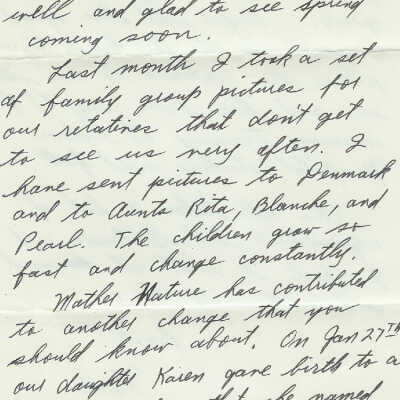 well and glad to see spring
coming soon.
Last month I took a set
of family group pictures for
our relatives that don't get
to see us very often. I
have sent pictures to Denmark
and to Aunts Rita, Blanche, and
Pearl. The children grow so
fast and change constantly.
Mother Nature has contributed
to another change that you
should know about. On Jan 27TH
our daughter Karen gave birth to a
that she named